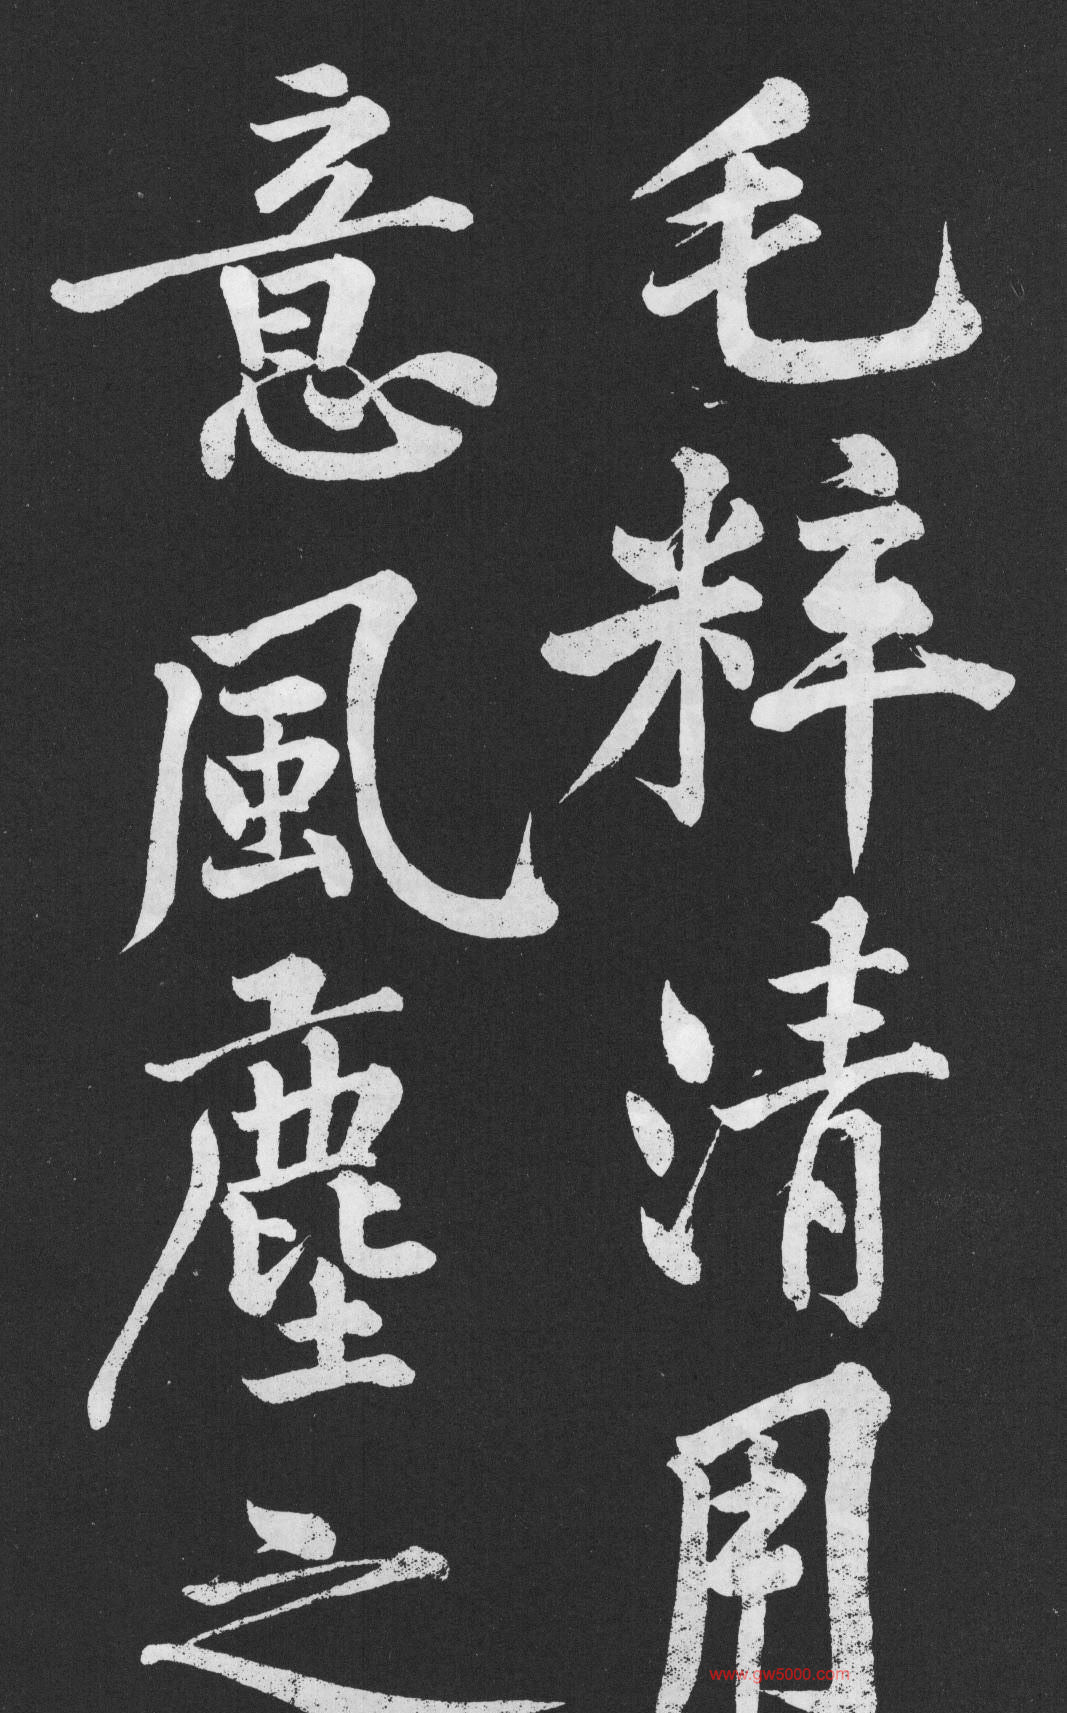 毛粹清用
意風塵之
www.gw5000.com